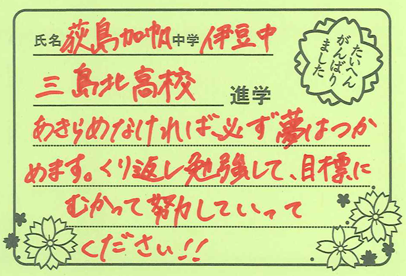 氏名 荻島加帆 中学 伊豆中
三島北高校 進学
たいへん
がんばり
ました
あきらめなければ、必ず夢はつか
めます。くり返し勉強して、目標に
むかって努力していって
ください!!